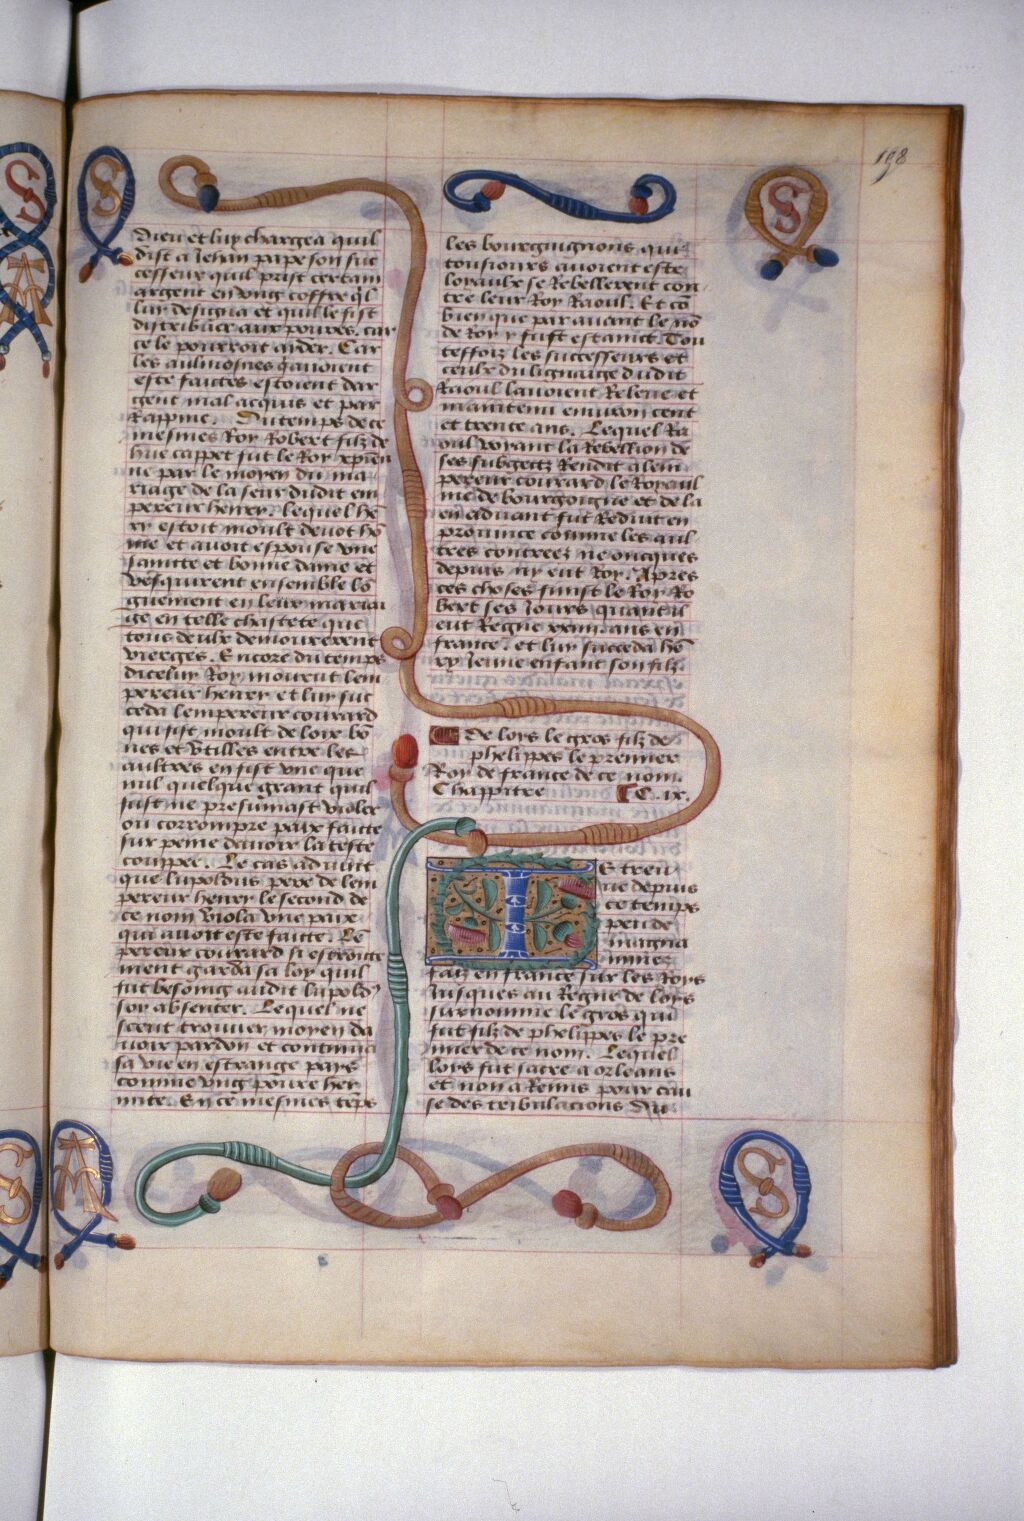 198
S
S
S
S
A
M
dieu et luy chargea quil
dist a Jehan pape son suc
cesseur quil prist certain
argent en vng coffre ql
luy designa et quil le fist
distribuer aux poures. car
ce le pourroit aider. Car
les aulmosnes qauoient
este faictes estoient dar
gent mal acquis et par
Rappine. Du temps de ce
mesmes Roy Robert filz de
hue cappet fut le Roy xpien
ne par le moyen du ma
riage de la seur dudit em
pereur henry. Lequel he
ry estoit moult deuot ho
me et auoit espouse vne
saincte et bonne dame et
vesquirent ensemble lo
guement en leur mariai
ge en telle chastete que
tous deulx demourerent
vierges. Encore du temps
dicelluy Roy mourut lem
pereur henry et luy suc
ceda lempereur courard
qui fist moult de loix bo
nes et vtilles entre les
aultres en fist vne que
nul quelque grant quil
fust ne presumast violer
ou corrompre paix faicte
sur peine dauoir la teste
couppee. Le cas aduint
que lupoldus pere de lem
pereur henry le second de
ce nom viola vne paix
qui auoit este faicte. Le
pereur courard si estroicte
ment garda sa loy quil
fut besoing audit lupold
soy absenter. Lequel ne
sceut trouuer moyen da
uoir pardon et continua
sa vie en estrange pays
comme vng poure her
mite. En ce mesmes teps
les bourguignons qui
tousiours auoient este
loyaulx se Rebellerent con
tre leur Roy Raoul. Et co
bien que par auant le no
de Roy y fust estainct. Tou
teffoiz les successeurs et
ceulx du lignaige dudit
Raoul lauoient Releue et
maintenu enuiron cent
et trente ans. Lequel Ra
oul voyant la Rebellion de
ses subgectz Rendit a lem
pereur courard le Royaul
me de bourgoigne et de la
en auant fut Reduit en
prouince comme les aul
tres contrees ne oncques
depuis ny eut Roy. Apres
ces choses finist le Roy Ro
bert ses Jours quant il
eut Regne xxiiii ans en
france. et luy succeda he
ry Jeune enfant son filz.
De loys le gros filz de
phelippes le premier
Roy de france de ce nom.
Chappitre C. ix.
Es treu
ue depuis
ce temps
peu de
magna
nimez
faiz en france sur les Roys
Jusques au Regne de loys
surnomme le gros qui
fut filz de phelippes le pre
mier de ce nom. Lequel
loys fut sacre a orleans
et non a Reims pour cau
se des tribulacions du
S
A
M
S